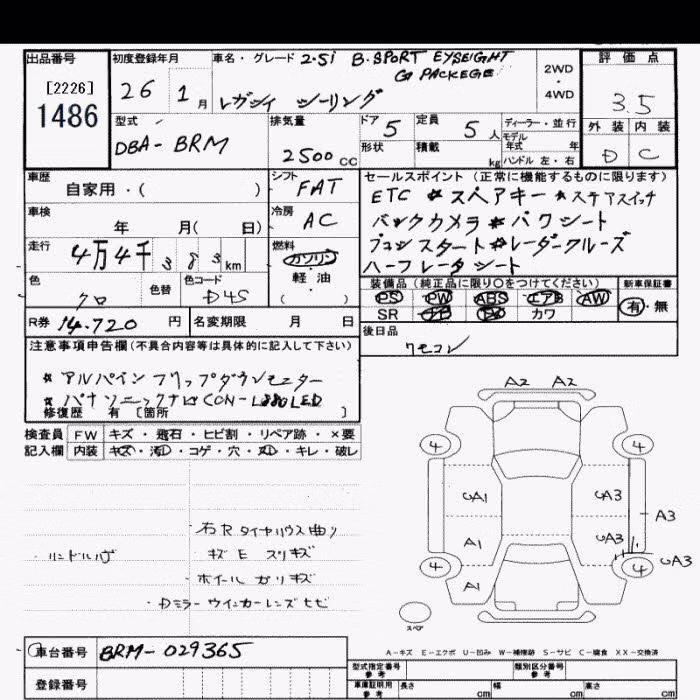 出品番号
[2226]
1486
初度登録年月
26 1月
車名・グレード 2.5i B・SPORT EYESIGHT
G PACKEGE
レガシィ ツーリング
2WD
・
4WD
評価点
3.5
外装 内装
D C
型式
DBA-BRM
排気量
2500cc
ドア 5
形状
定員 5人
積載 kg
ディーラー・並行
モデル
年式 年
ハンドル 左・右
車歴
自家用・( )
シフト
FAT
車検
年 月( 日)
冷房
AC
走行
4万4千383km
燃料
ガソリン
軽・油
( )
色
クロ
色替
色コード
D4S
R券 14,720円
名変期限 月 日
セールスポイント(正常に機能するものに限ります)
ETC * スペアキー * ステアスイッチ
バックカメラ * パワシート
プッシュスタート * レーダークルーズ
ハーフレータシート
装備品(純正品に限り○をつけてください)
PS PW ABS エアB AW
SR ナビ カワ
新車保証書
有・無
後日品
リモコン
注意事項申告欄(不具合内容等は具体的に記入して下さい)
* アルパイン フリップダウンモニター
* パナソニックナビ CN-L880LED
修復歴 有 [箇所 ]
検査員 FW キズ・飛石・ヒビ割・リペア跡・×要
記入欄 内装 キズ・汚・コゲ・穴・・キレ・破レ
右R タイヤハウス曲り
・ハンドルハゲ キズ E スリキズ
・ホイール ガリキズ
・Dミラー ウインカーレンズ ヒビ
A2 A2
4 4
UA1 UA3
A3
A1 UA3
4 4 UA3
A1
スペア
A-キズ E-エクボ U-凹み W-補修跡 S-サビ C-腐食 XX-交換済
車台番号 BRM-029365
登録番号
型式指定番号
参考
類別区分番号
参考
車庫証明用
参考
長さ cm 幅 cm 高さ cm